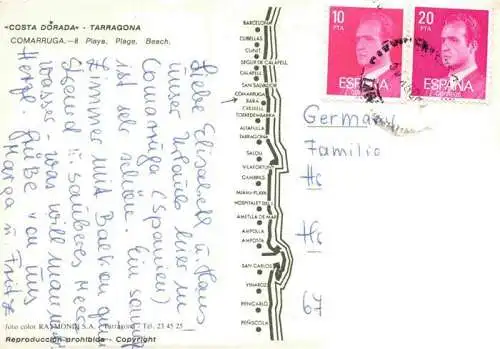 «COSTA DORADA» - TARRAGONA
COMARRUGA.-8 Playa, Plage, Beach.
Liebe Elisabeth u. Hans
unser Urlaub hier in
Comarruga (Spanien)
ist sehr schön. Ein
Zimmer mit Balkon
Strand u. sauberes
wasser - was will man
Grüße von uns
Marga u. Fritz
foto color RAYMOND S.A. - Tarragona - Tel. 23 45 25
Reproducción prohibida - Copyright
BARCELONA
CUBELLAS
CUNIT
SEGUR DE CALAFELL
CALAFELL
SAN SALVADOR
COMARRUGA
BARA
CREIXELL
TORREDEMBARRA
ALTAFULLA
TARRAGONA
SALOU
VILAFORTUNY
CAMBRILS
MIAMI-PLAYA
HOSPITALET DEL I.
AMETLLA DE MAR
AMPOLLA
AMPOSTA
SAN CARLOS
VINAROZ
BENICARLO
PEÑISCOLA
10
PTA
ESPAÑA
CORREOS
20
PTA
ESPAÑA
CORREOS
Germany
Familie
67